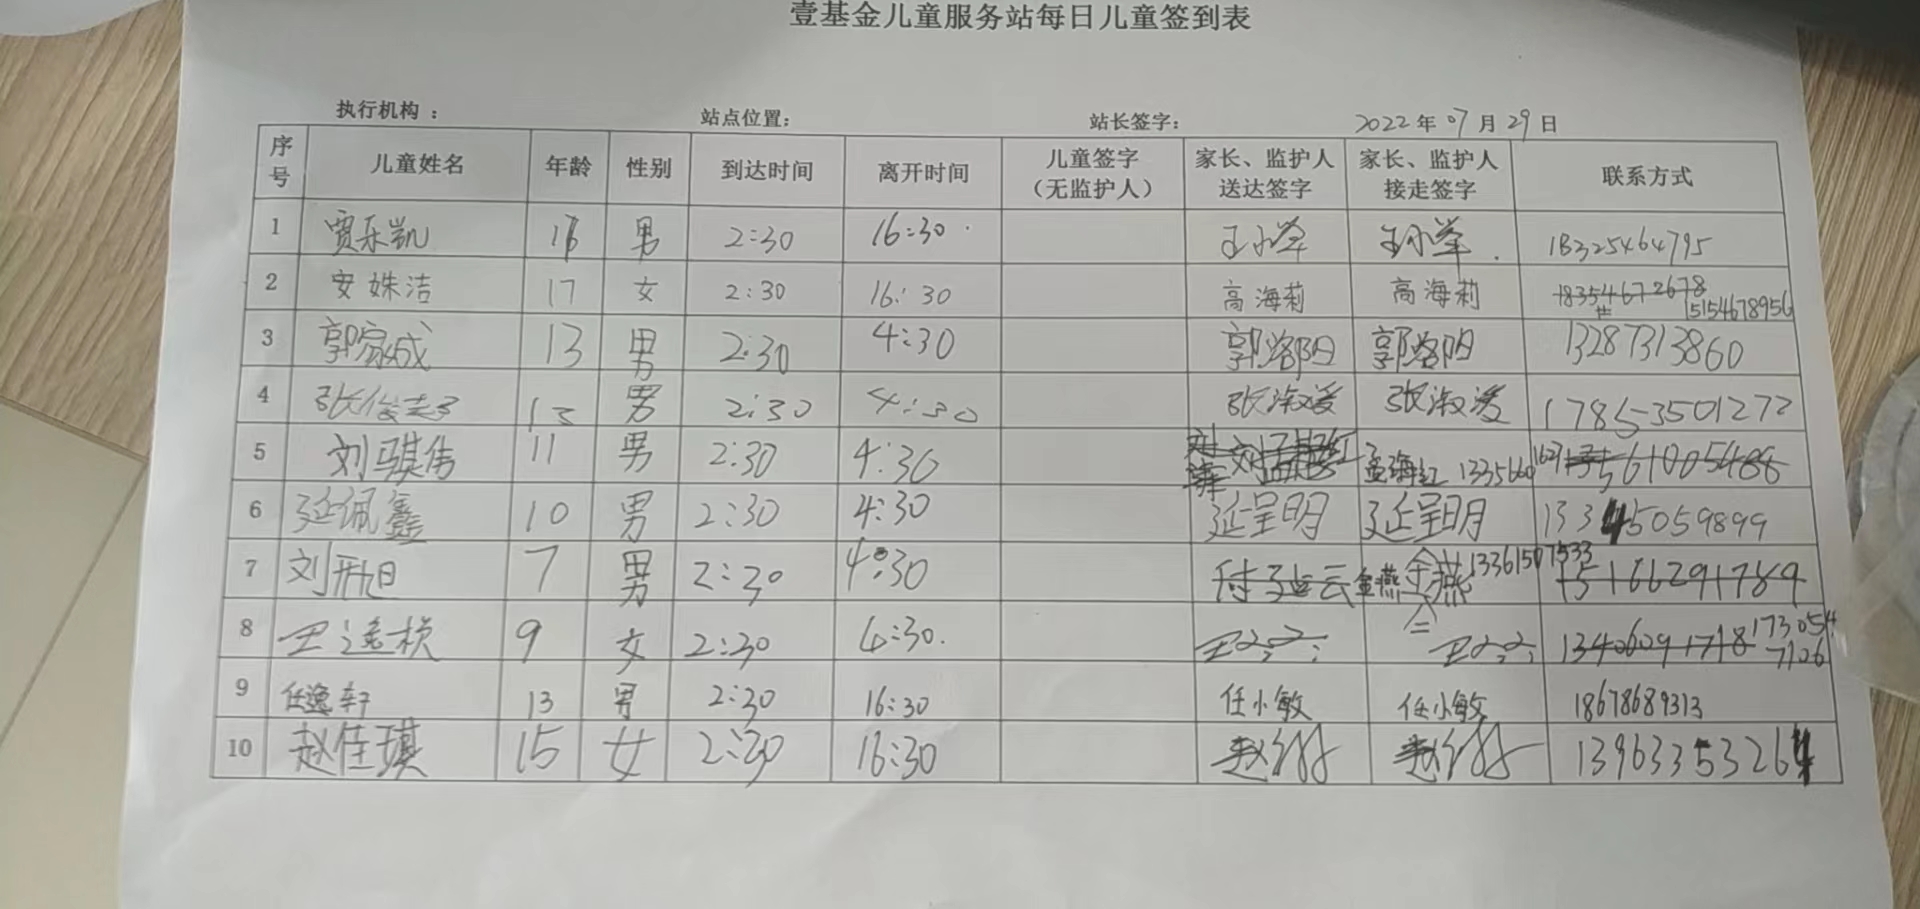 壹基金儿童服务站每日儿童签到表
执行机构： 站点位置： 站长签字： 2022年07月29日
序号 儿童姓名 年龄 性别 到达时间 离开时间 儿童签字（无监护人） 家长、监护人送达签字 家长、监护人接走签字 联系方式
1 贾乐凯 男 2:30 16:30 18325464795
2 安姝洁 17 女 2:30 16:30 高海莉 高海莉 15154678956
3 郭家成 13 男 2:30 4:30 郭洛阳 郭洛阳 13287313860
4 13 男 2:30 4:30 张淑爱 张淑爱 17853501272
5 刘骐伟 11 男 2:30 4:30 孟海红
6 延佩鑫 10 男 2:30 4:30 延呈明 延呈明 13345059899
7 刘珩旭 7 男 2:30 4:30 金燕 13361507533
8 9 女 2:30 4:30. 13406091718 17305467126
9 任逸轩 13 男 2:30 16:30 任小敏 任小敏 18678689313
10 赵佳琪 15 女 2:30 16:30 13963353264